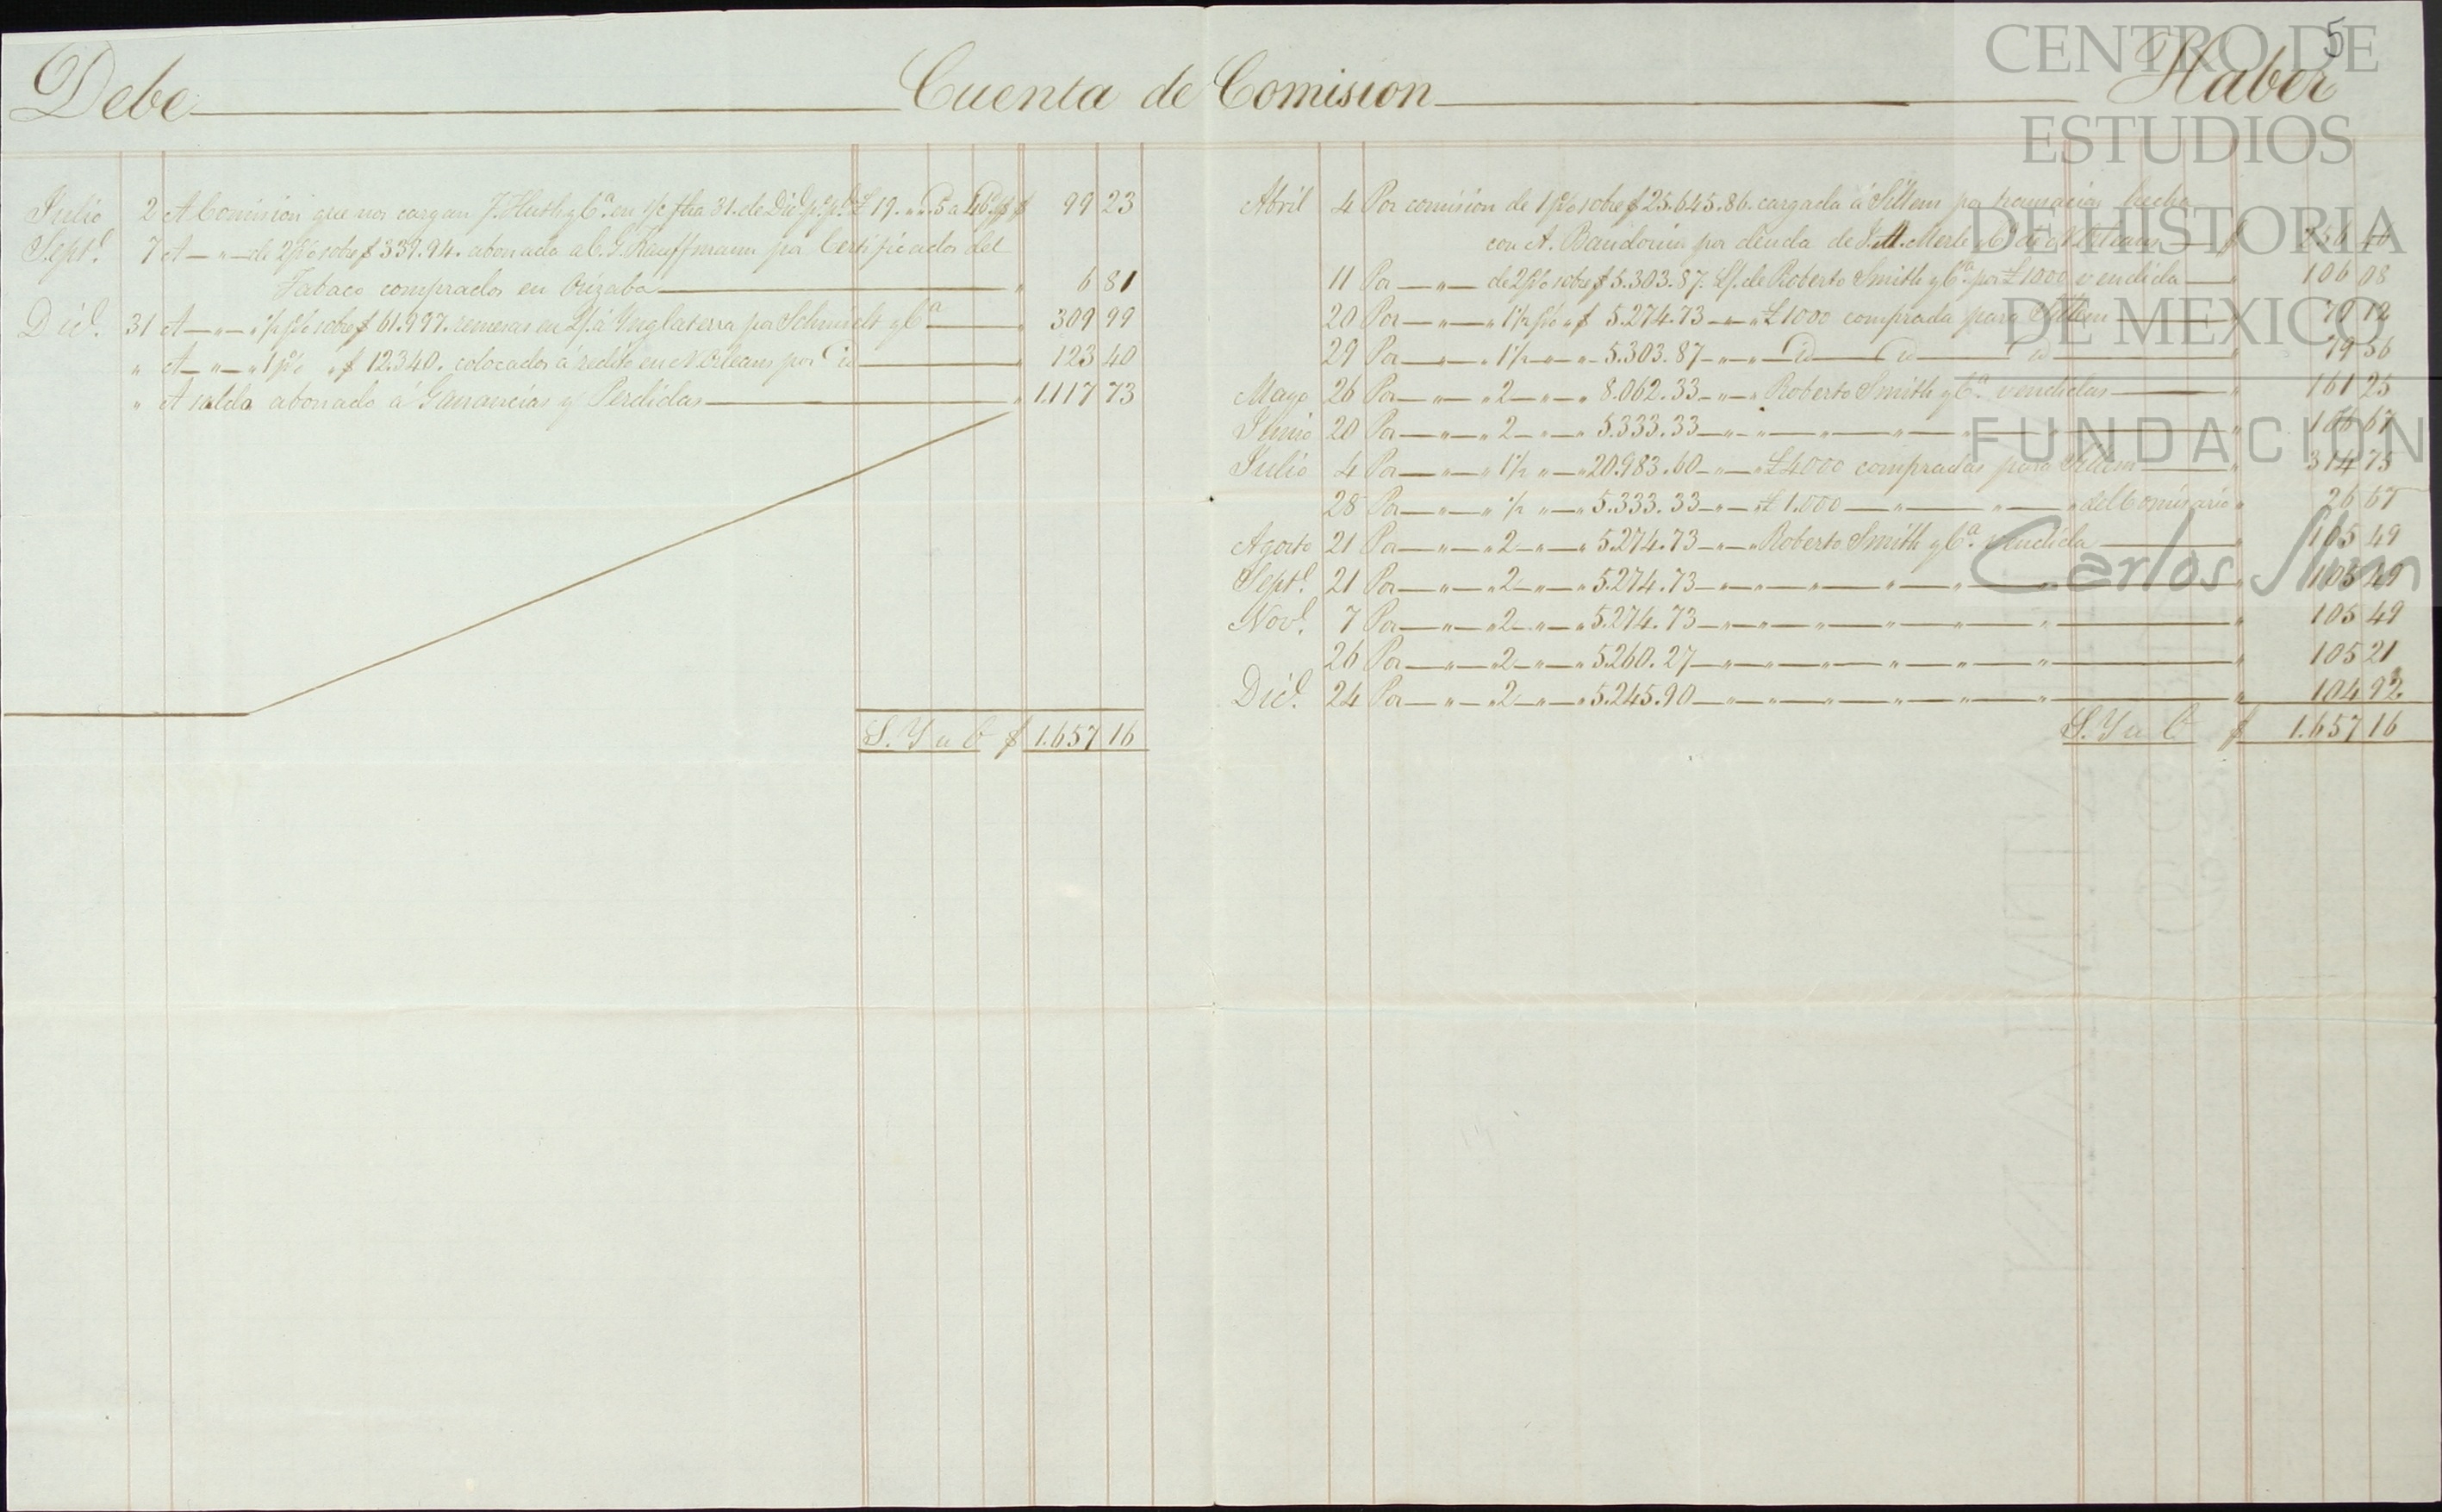 5
Debe Cuenta de Comision Haber
Julio 2 A Comision que nos cargan F. Huth y Cª en c/c fha 31. de Dice. pº pº £ 19. " " 5 a $ 99 23
Septe. 7 A — " — de 2 p% sobre $ 339.94. abonada a C. G. Kauffmann por Certificados del
Tabaco comprados en Orizaba " 6 81
Dice. 31 A — " — " ½ p% sobre $ 61.997. remesas en L/. á Ynglaterra por Schmidt y Cª " 309 99
" A — " — " 1 p% " $ 12.340. colocados á redito en N. Orleans por id " 123 40
" A saldo abonado á Ganancias y Perdidas " 1.117 73
S. Y u O $ 1.657 16
Abril 4 Por comision de 1 p% sobre $ 25.645.86. cargada á Sillem por transacion hecha
con A. Baudouin por deuda de J. A. Merle y Cª de N. Orleans $ 256 46
11 Por — " — de 2 p% sobre $ 5.303.87. L/. de Roberto Smith y Cª por £ 1000 vendida " 106 08
20 Por — " — " 1½ p% " $ 5.274.73 — " — " £ 1000 comprada para Sillem " 79 12
29 Por — " — " 1½ — " — " 5.303.87 — " — " id id id " 79 56
Mayo 26 Por — " — " 2 — " — " 8.062.33 — " — " Roberto Smith y Cª. vendidas " 161 25
Junio 20 Por — " — " 2 — " — " 5.333.33 — " — " — " — " — " — " 106 67
Julio 4 Por — " — " 1½ " — " 20.983.60 — " — " £ 4000 compradas para Sillem " 314 75
28 Por — " — " ½ " — " 5.333.33 — " — " £ 1.000 — " — " — " del Comisario " 26 67
Agosto 21 Por — " — " 2 — " — " 5.274.73 — " — " Roberto Smith y Cª. vendida " 105 49
Septe. 21 Por — " — " 2 — " — " 5.274.73 — " — " — " — " — " — " 105 49
Nove. 7 Por — " — " 2 — " — " 5.274.73 — " — " — " — " — " — " 105 49
26 Por — " — " 2 — " — " 5.260.27 — " — " — " — " — " — " 105 21
Dice. 24 Por — " — " 2 — " — " 5.245.90 — " — " — " — " — " — " 104 92
S. Y u O $ 1.657 16
CENTRO DE
ESTUDIOS
DE HISTORIA
DE MEXICO
FUNDACIÓN
Carlos Slim